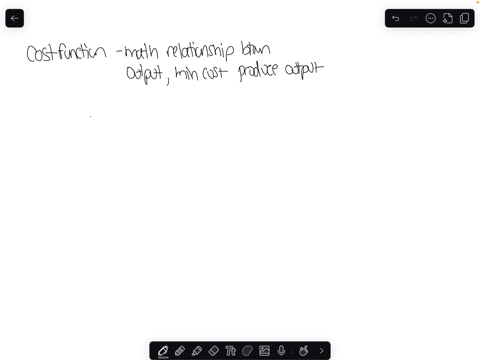 Cost function - math relationship btwn
output, min cost produce output